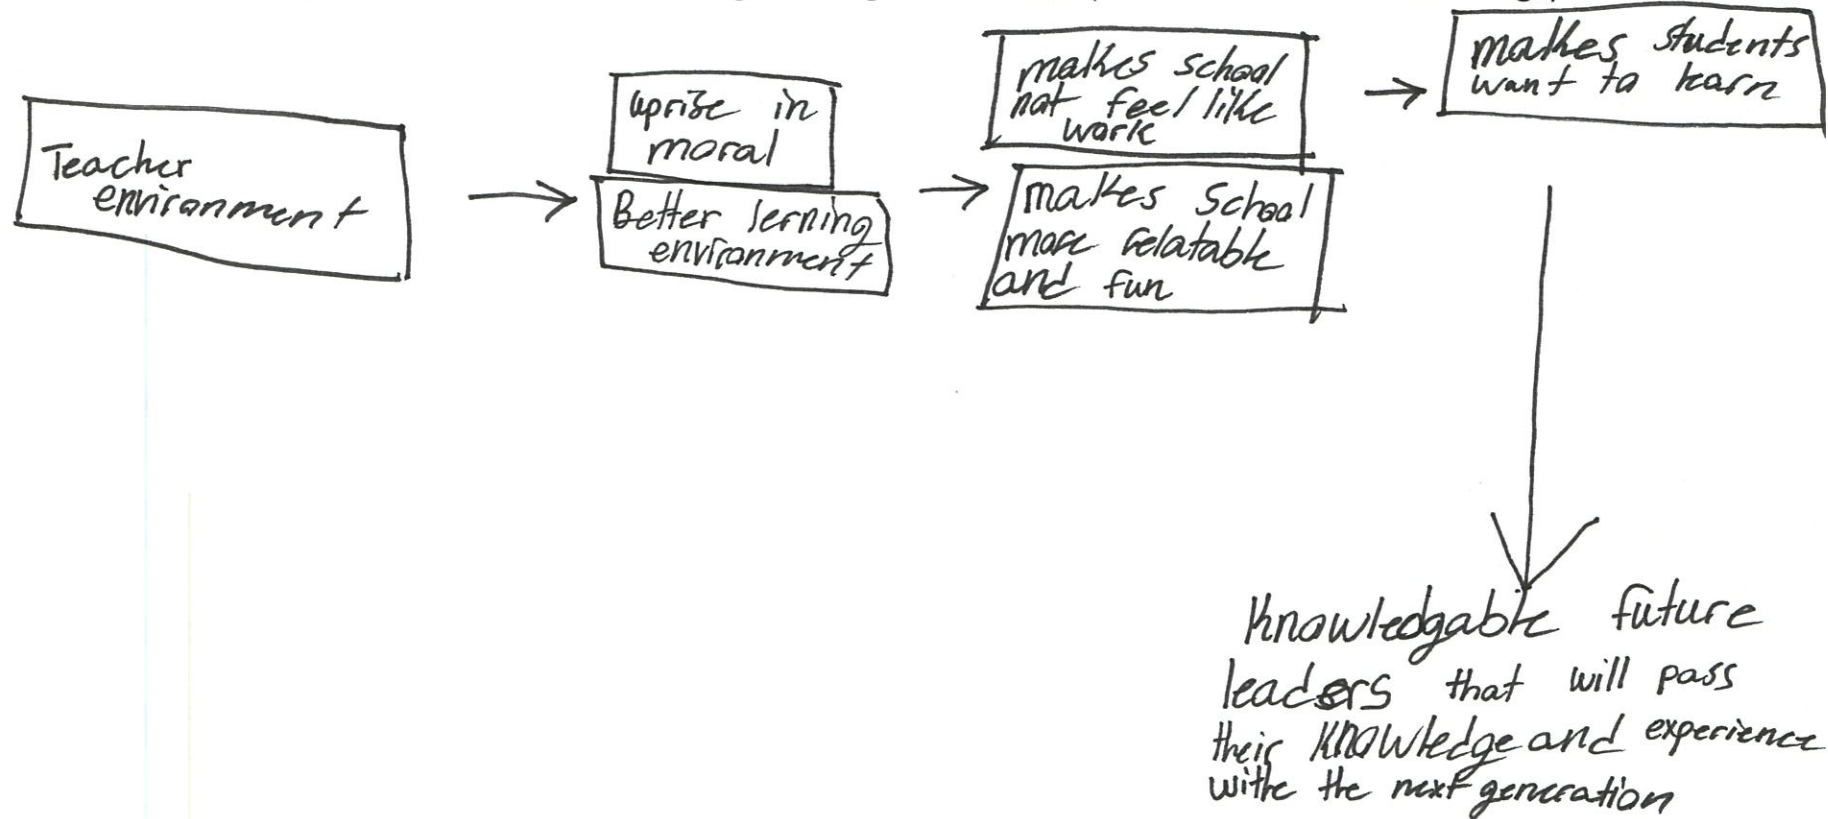 Teacher
environment
uprise in
moral
Better lerning
environment
makes school
not feel like
work
makes School
more relatable
and fun
makes students
want to learn
Knowledgable future
leaders that will pass
their Knowledge and experience
withe the next generation